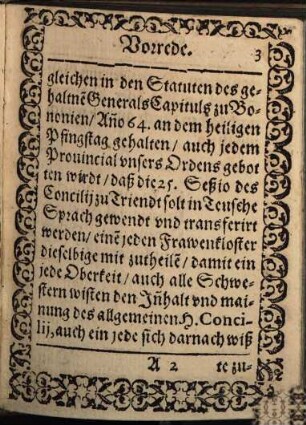 Vorrede. 3
gleichen in den Statuten des ge-
haltnē Generals Capituls zu Bo-
nonien/ Año 64. an dem heiligen
Pfingstag gehalten/ auch jedem
Prouincial vnsers Ordens gebot
ten wirdt/ daß die 25. Seßio des
Concilij zu Triendt solt in Teusche
Sprach gewendt vnd transferirt
werden/ einē jeden Frawenkloster
dieselbige mit zutheilē/ damit ein
jede Oberkeit/ auch alle Schwe-
stern wisten den Jñhalt vnd mai-
nung des allgemeinen H. Conci-
lij, auch ein jede sich darnach wiß
A 2 te zu-